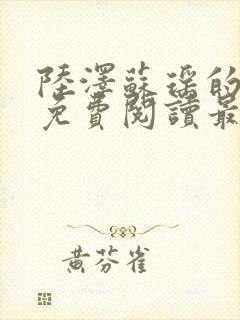 陸澤蘇瑤的
免費閱讀最
黃芬雀